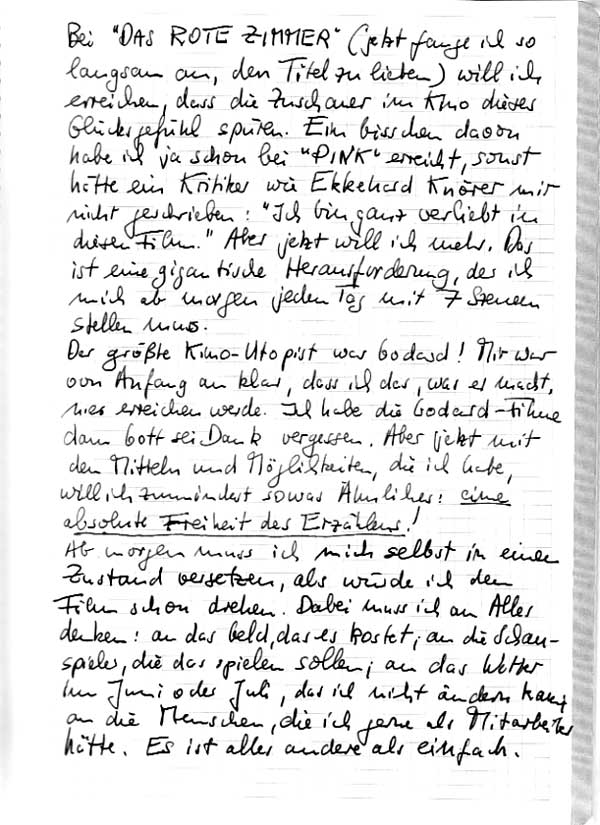 Bei "DAS ROTE ZIMMER" (jetzt fange ich so
langsam an, den Titel zu lieben) will ich
erreichen, dass die Zuschauer im Kino dieses
Glücksgefühl spüren. Ein bisschen davon
habe ich ja schon bei "PINK" erreicht, sonst
hätte ein Kritiker wie Ekkehard Knörer mir
nicht geschrieben: "Ich bin ganz verliebt in
diesen Film." Aber jetzt will ich mehr. Das
ist eine gigantische Herausforderung, der ich
mich ab morgen jeden Tag mit 7 Szenen
stellen muss.
Der größte Kino-Utopist war Godard! Mir war
von Anfang an klar, dass ich das, was er macht,
nie erreichen werde. Ich habe die Godard-Filme
dann Gott sei Dank vergessen. Aber jetzt mit
den Mitteln und Möglichkeiten, die ich habe,
will ich zumindest sowas Ähnliches: eine
absolute Freiheit des Erzählens!
Ab morgen muss ich mich selbst in einen
Zustand versetzen, als würde ich den
Film schon drehen. Dabei muss ich an Alles
denken: an das Geld, das es kostet; an die Schau-
spieler, die das spielen sollen; an das Wetter
im Juni oder Juli, das ich nicht ändern kann;
an die Menschen, die ich gerne als Mitarbeiter
hätte. Es ist alles andere als einfach.